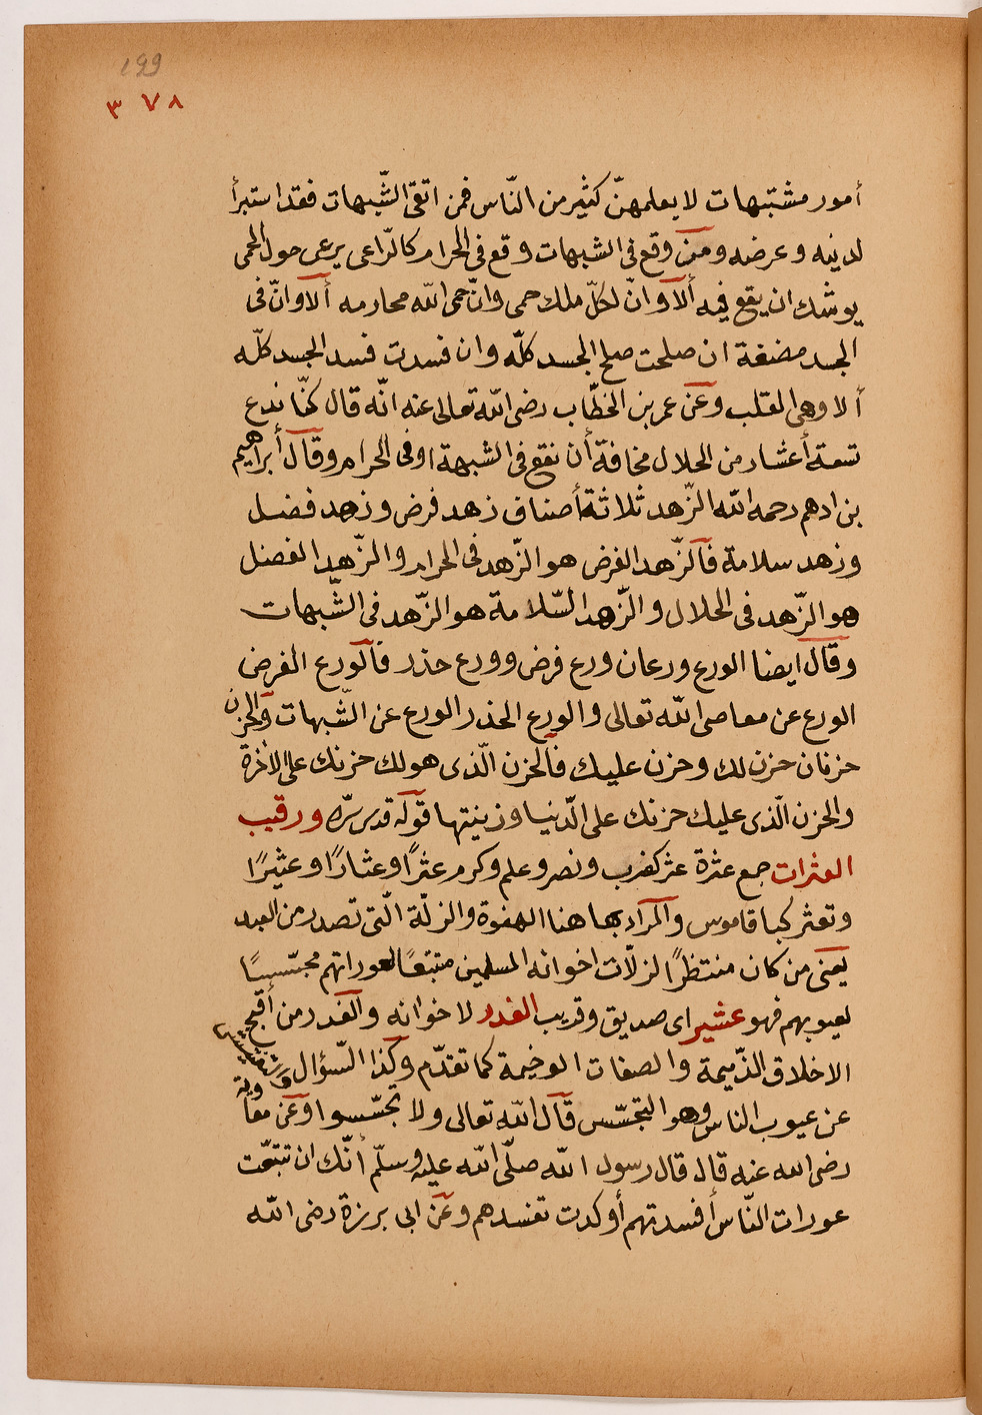 ١٩٩
٣٧٨
أمور مشتبهات لا يعلمهنّ كثير من النّاس فمن اتقى الشّبهات فقد استبرأ
لدينه وعرضه ومن وقع فى الشبهات وقع فى الحرام كالرّاعى يرعى حول الحمى
يوشك ان يقع فيه ألا وانّ لكلّ ملك حمى وانّ حمى اللّه محارمه ألا وانّ فى
الجسد مضغة ان صلحت صلح الجسد كلّه وان فسدت فسد الجسد كلّه
ألا وهى القلب وعن عمر بن الخطّاب رضى اللّه تعالى عنه انّه قال كنّا ندع
تسعة أعشار من الحلال مخافة أن نقع فى الشبهة او فى الحرام وقال أبراهيم
بن ادهم رحمه اللّه الزّهد ثلاثة أصناف زهد فرض وزهد فضل
وزهد سلامة فالزّهد الفرض هو الزّهد فى الحرام والزّهد الفضل
هو الزّهد فى الحلال والزّهد السّلامة هو الزّهد فى الشّبهات
وقال ايضا الورع ورعان ورع فرض وورع حذر فالورع الفرض
الورع عن معاصى اللّه تعالى والورع الحذر الورع عن الشّبهات والحزن
حزنان حزن لك وحزن عليك فالحزن الّذى هو لك حزنك على الآخرة
والحزن الّذى عليك حزنك على الدّنيا وزينتها قوله قدس سرّه ورقيب
العثرات جمع عثرة عثر كضرب ونصر وعلم وكرم عثرًا وعثارًا وعثيرًا
وتعثر كبا قاموس والمراد بها هنا الهفوة والزلّة الّتى تصدر من العبد
يعنى من كان منتظرًا لزلّات اخوانه المسلمين متبّعًا لعوراتهم مجسّسًا
لعيوبهم فهو عشير اى صديق وقريب الغدر لاخوانه والغدر من أقبح
الاخلاق الذّميمة والصفات الوخيمة كما تقدّم وكذا السّؤال والتفتيش
عن عيوب الناس وهو التجسّس قال اللّه تعالى ولا تجسّسوا وعن معاوية
رضى اللّه عنه قال قال رسول اللّه صلّى اللّه عليه وسلّم أنّك ان تتبّعت
عورات النّاس أفسدتهم أو كدت تفسدهم وعن ابى برزة رضى اللّه